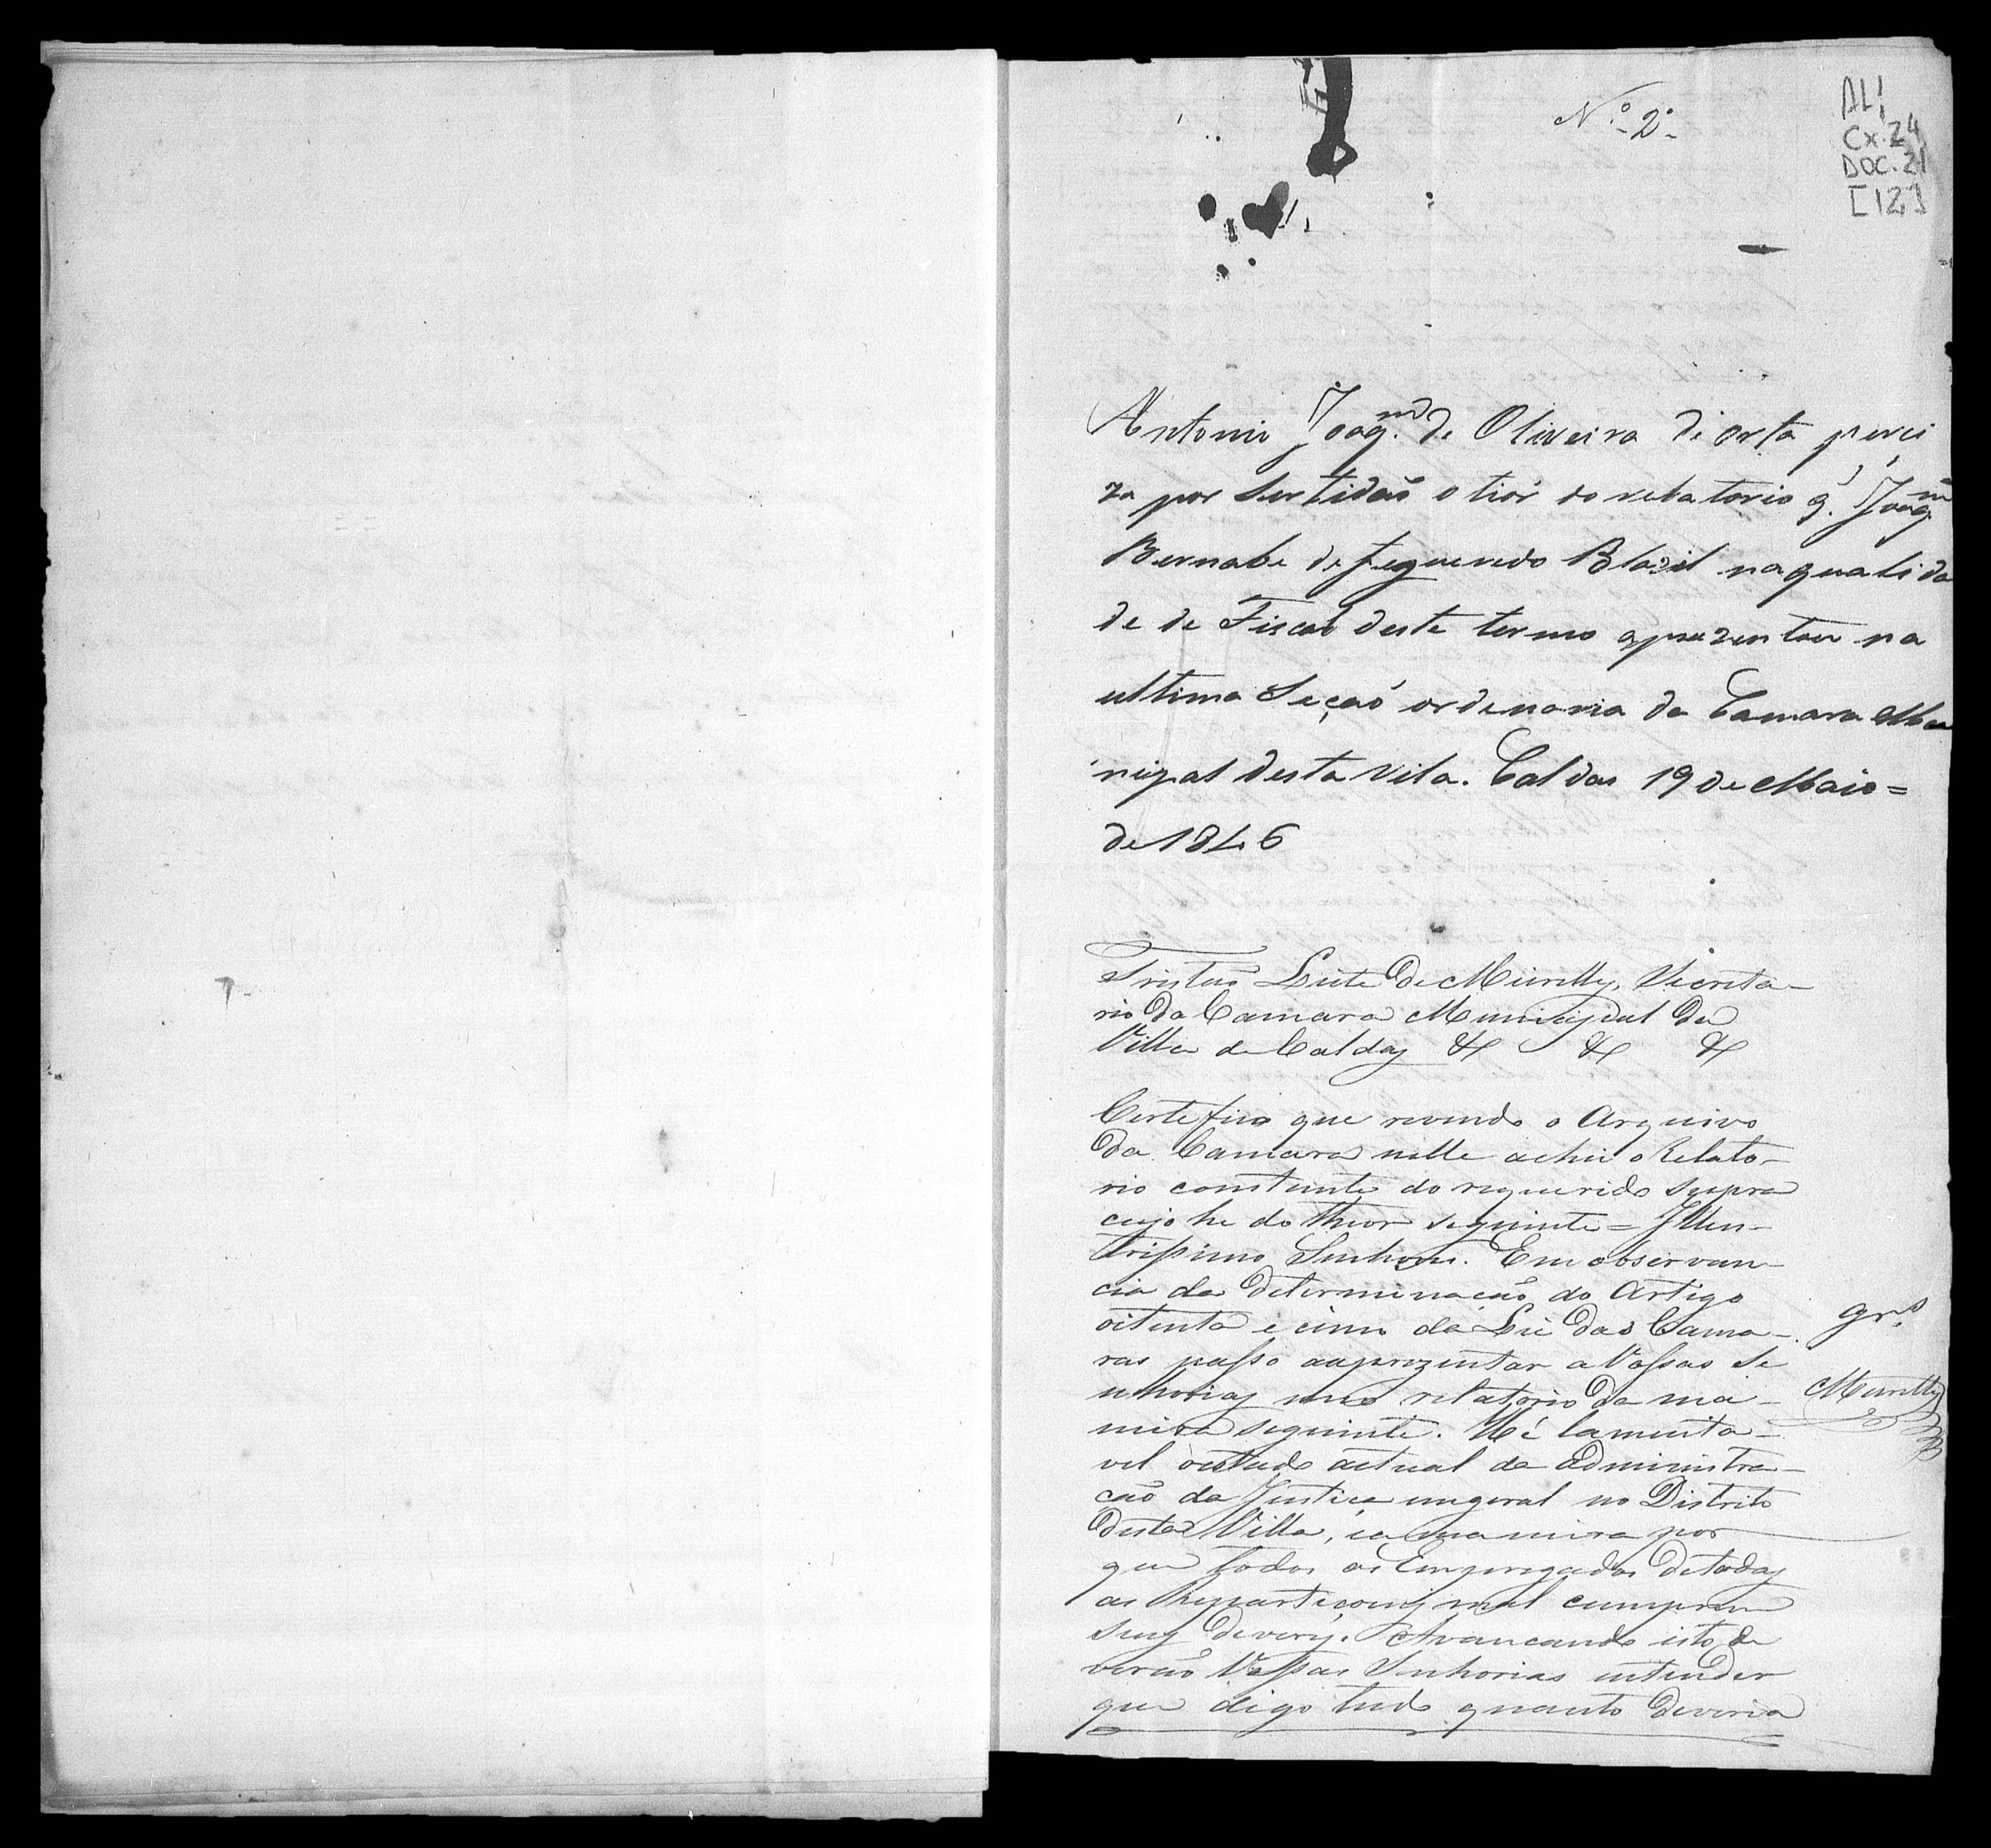 Nº 2º
AL!
Cx. 24
DOC. 21
[12]
Antonio Joaqm de Oliveira di Orta perci
za por Sertidaõ o tiór do relatorio q. Joaqm
Bernabe de Fegueredo Blazil na qualida
de de Fiscal deste termo aprezentou na
ultima Seçaõ ordenaria da Camara Mu
nicipal desta vila. Caldas 19 de Maio =
de 1846
Tristaõ Leite de Secreta-
rio da Camara Municipal da
Villa de Caldas & & &
Certefico que revendo o Arquivo
da Camara nelle achei o Relato-
rio constante do requerido supra
cujo he do theor seguinte = Illus-
trissimos Senhores. Em observan-
cia da determinacaõ do Artigo
oitenta e cinco da Lei das Cama-
ras passo aaprezentar a Vossas Se
nhorias meo relatorio da ma-
neira seguinte. Hé lamenta-
vel oestado actual da Administra-
cáo da Justiça emgeral no Distrito
desta Villa, ea maneira por
que todos os Empregados de todas
as Reparticoens mal cumprem
seus deveres. Avancando isto de
veraõ Vossas Senhorias entender
que digo tudo quanto deveria
grs